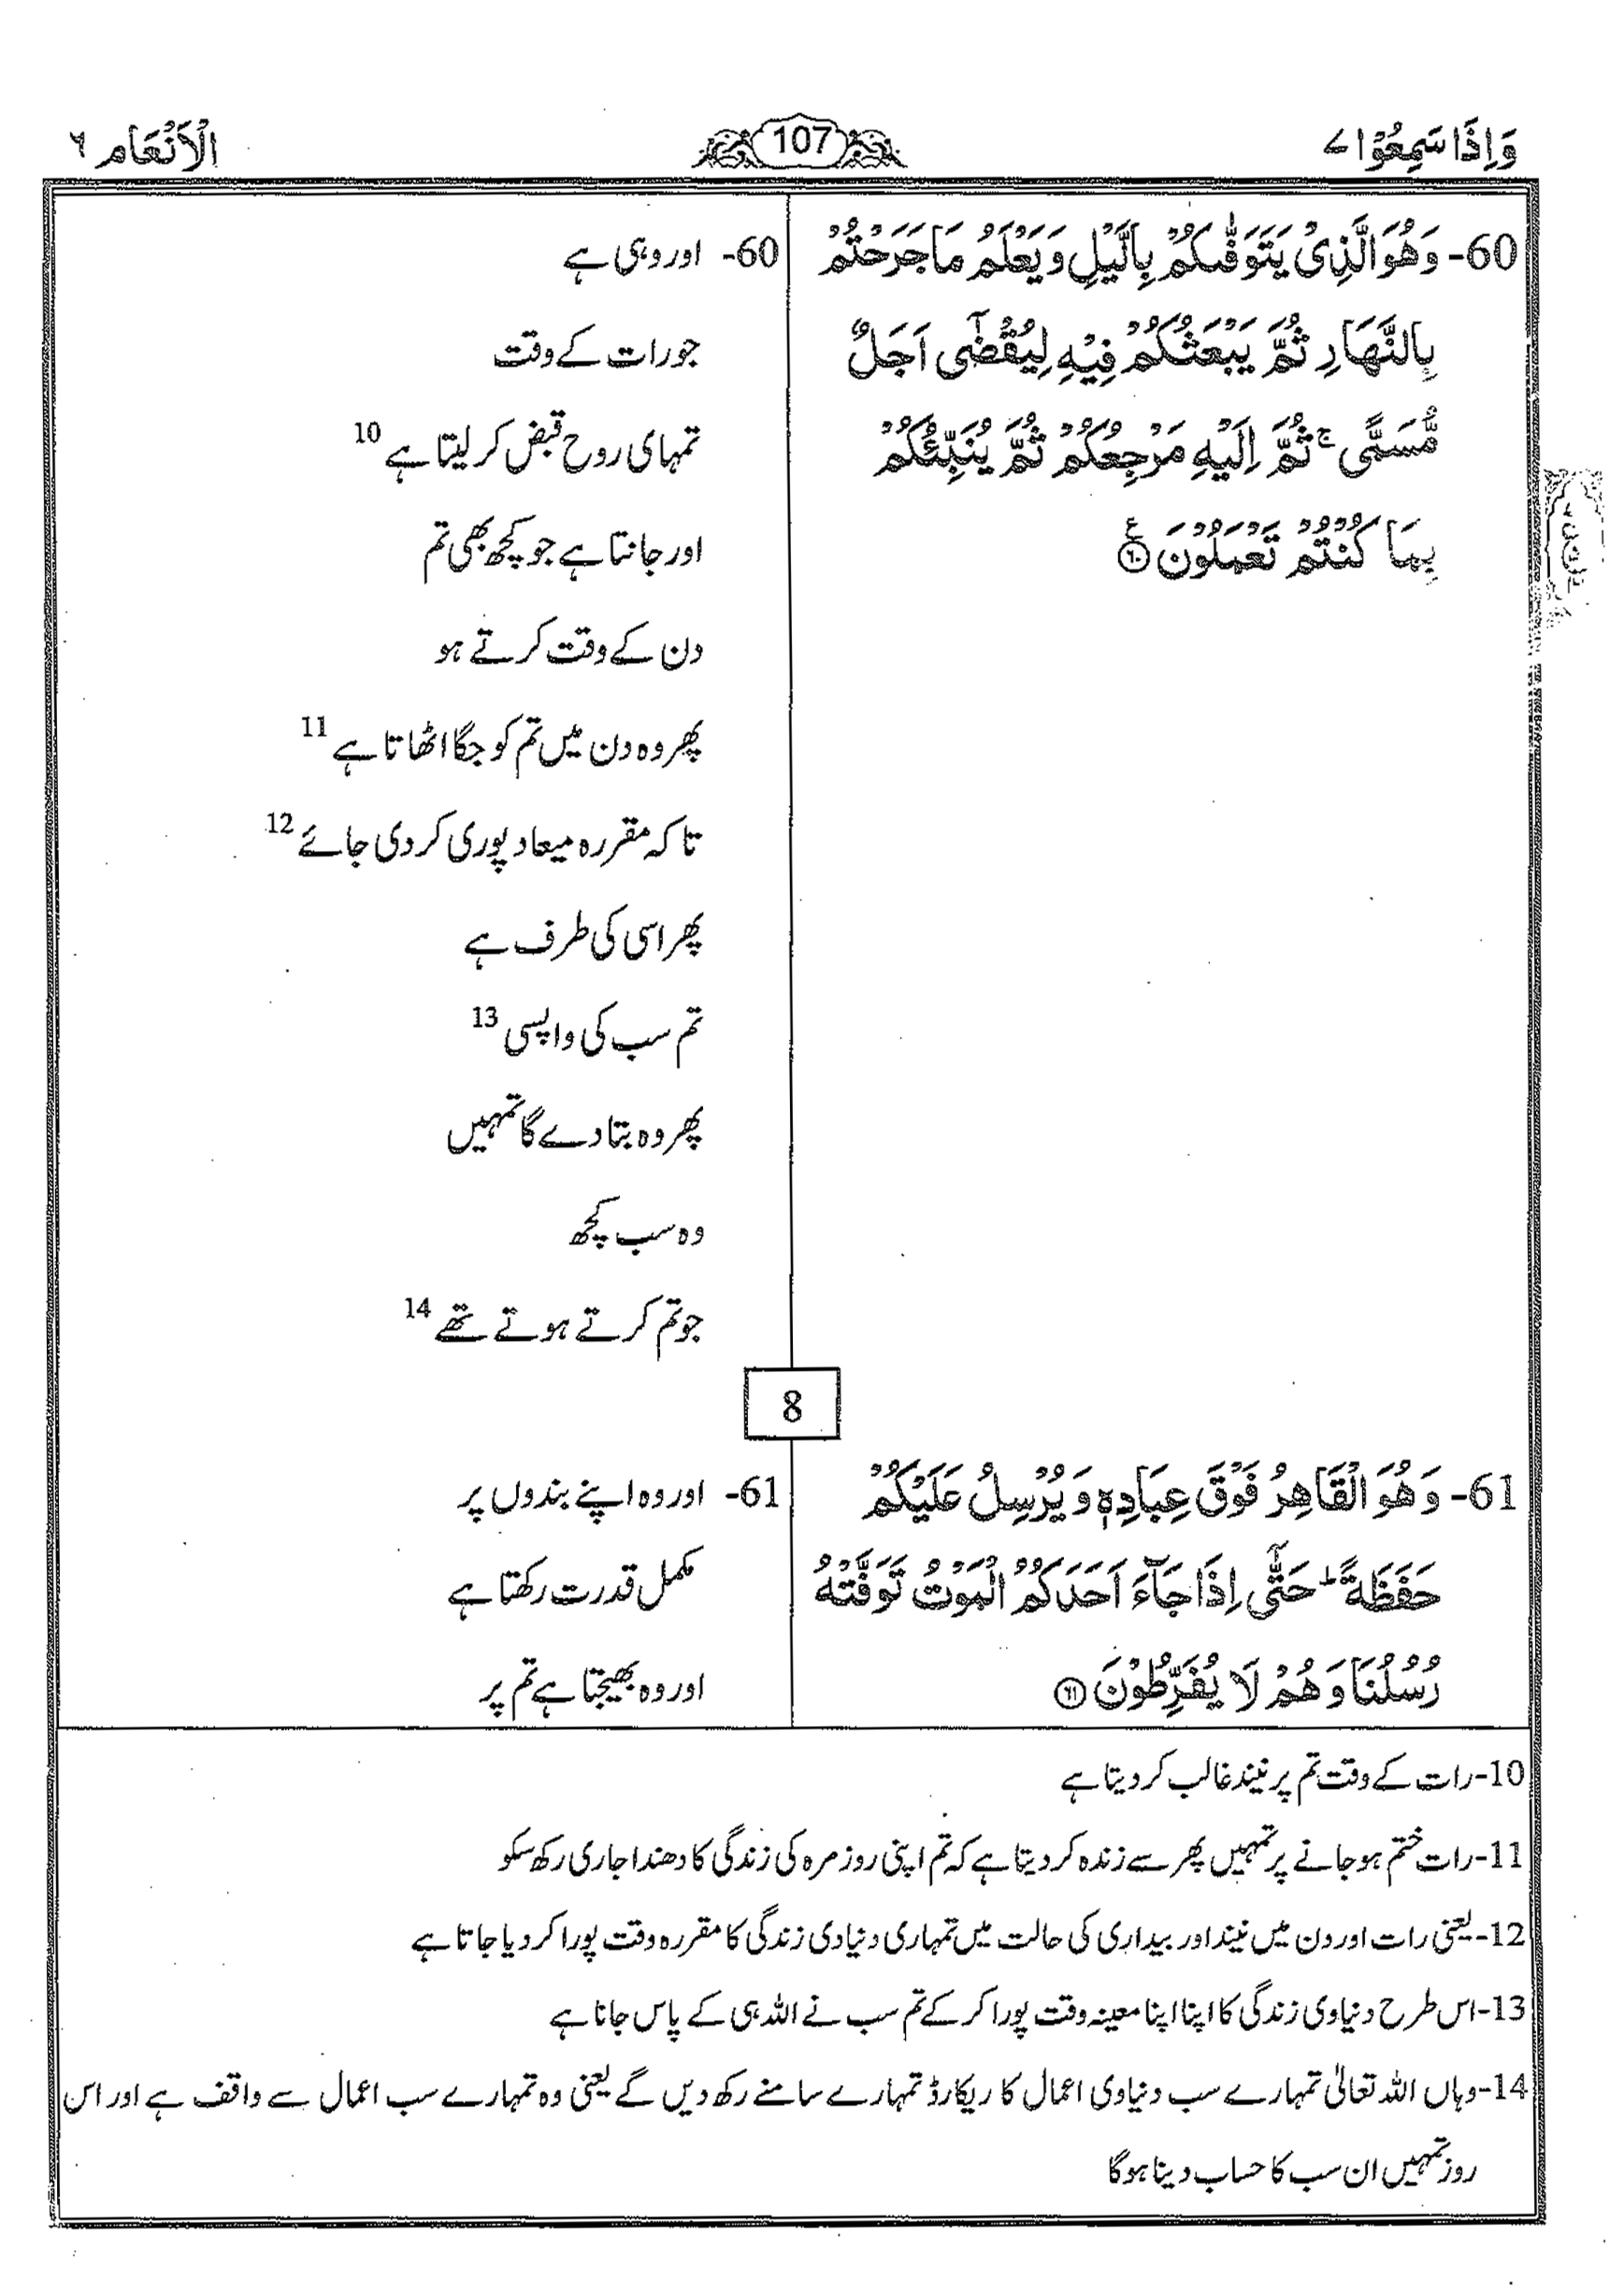 وَاِذَا سَمِعُوْا ۷
107
الْاَنْعَام ٦
60- وَهُوَ الَّذِىْ يَتَوَفّٰىكُمْ بِالَّيْلِ وَيَعْلَمُ مَا جَرَحْتُمْ
بِالنَّهَارِ ثُمَّ يَبْعَثُكُمْ فِيْهِ لِيُقْضٰٓى اَجَلٌ
مُّسَمًّى ۚ ثُمَّ اِلَيْهِ مَرْجِعُكُمْ ثُمَّ يُنَبِّئُكُمْ
بِمَا كُنْتُمْ تَعْمَلُوْنَ ﴿٦٠﴾ ع
60- اور وہی ہے
جو رات کے وقت
تمہای روح قبض کر لیتا ہے 10
اور جانتا ہے جو کچھ بھی تم
دن کے وقت کرتے ہو
پھر وہ دن میں تم کو جگا اٹھاتا ہے 11
تاکہ مقررہ میعاد پوری کر دی جائے 12
پھر اسی کی طرف ہے
تم سب کی واپسی 13
پھر وہ بتا دے گا تمہیں
وہ سب کچھ
جو تم کرتے ہوتے تھے 14
8
61- وَهُوَ الْقَاهِرُ فَوْقَ عِبَادِهٖ وَيُرْسِلُ عَلَيْكُمْ
حَفَظَةً ؕ حَتّٰٓى اِذَا جَآءَ اَحَدَكُمُ الْمَوْتُ تَوَفَّتْهُ
رُسُلُنَا وَهُمْ لَا يُفَرِّطُوْنَ ﴿٦١﴾
61- اور وہ اپنے بندوں پر
مکمل قدرت رکھتا ہے
اور وہ بھیجتا ہے تم پر
10-رات کے وقت تم پر نیند غالب کر دیتا ہے
11-رات ختم ہو جانے پر تمہیں پھر سے زندہ کر دیتا ہے کہ تم اپنی روز مرہ کی زندگی کا دھندا جاری رکھ سکو
12-یعنی رات اور دن میں نیند اور بیداری کی حالت میں تمہاری دنیادی زندگی کا مقررہ وقت پورا کر دیا جاتا ہے
13-اس طرح دنیاوی زندگی کا اپنا اپنا معینہ وقت پورا کر کے تم سب نے اللہ ہی کے پاس جانا ہے
14-وہاں اللہ تعالیٰ تمہارے سب دنیاوی اعمال کا ریکارڈ تمہارے سامنے رکھ دیں گے یعنی وہ تمہارے سب اعمال سے واقف ہے اور اس
روز تمہیں ان سب کا حساب دینا ہوگا